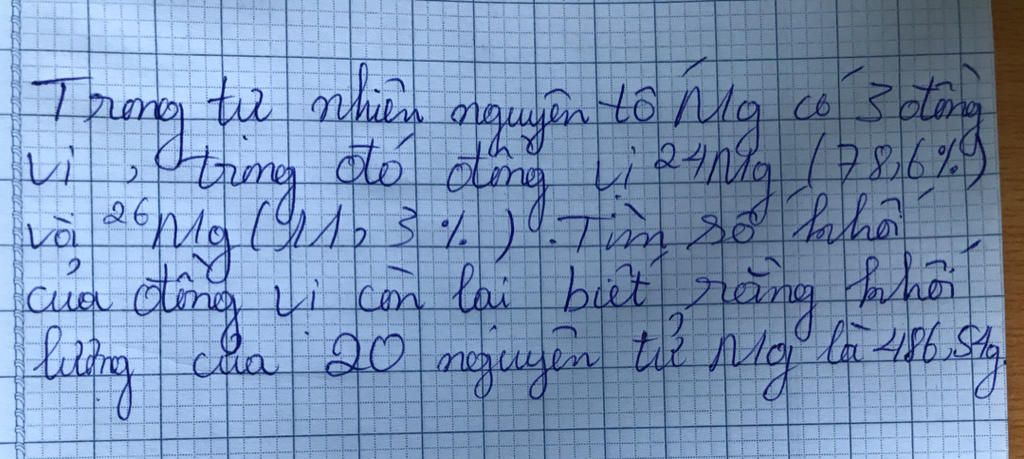 Trong tự nhiên nguyên tố Mg có 3 đồng
vị, trong đó đồng vị ²⁴Mg (78,6%)
và ²⁶Mg (11,3%). Tìm số khối
của đồng vị còn lại biết rằng khối
lượng của 20 nguyên tử Mg là 486,54g.